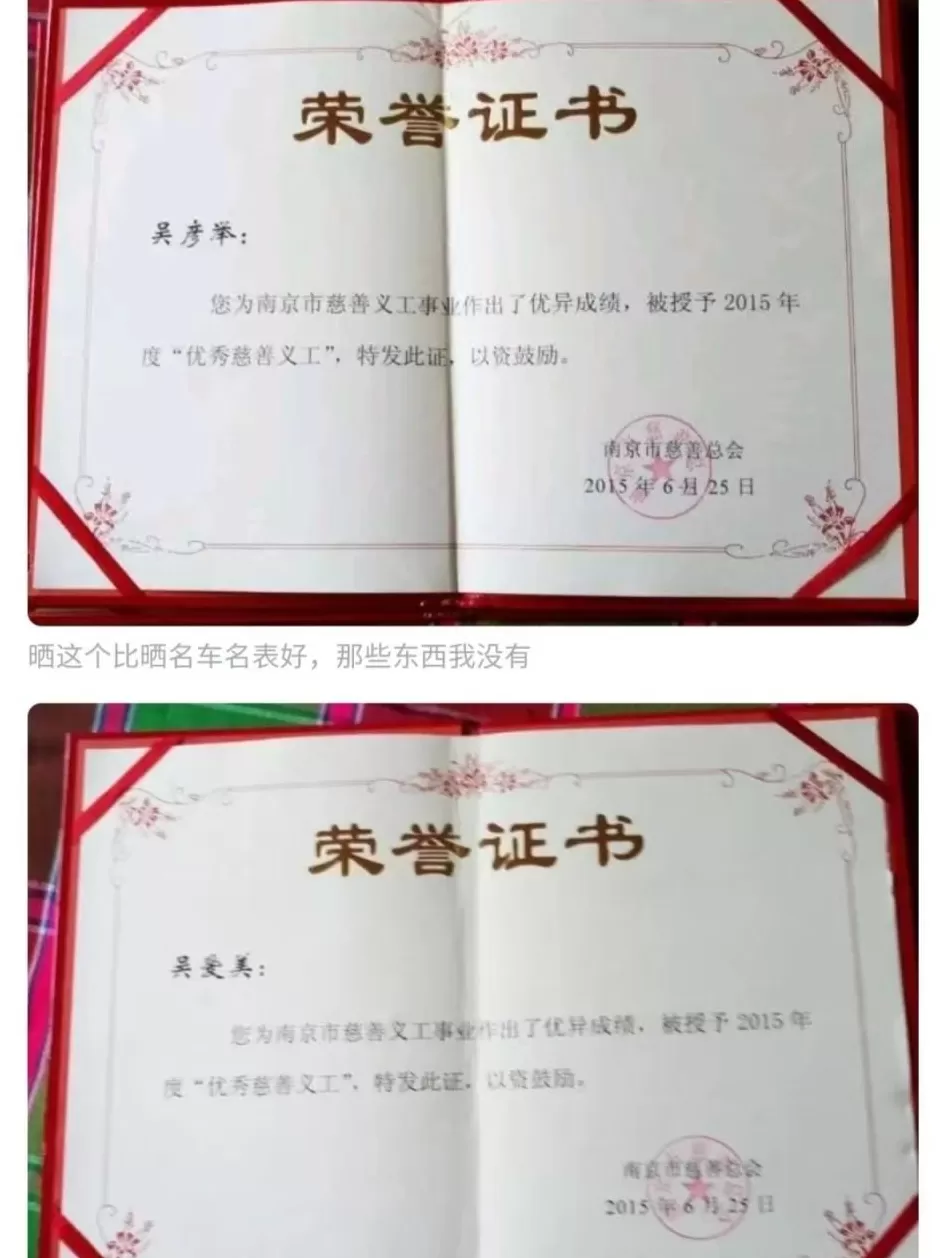 荣誉证书
吴彦举：
您为南京市慈善义工事业作出了优异成绩，被授予2015年
度“优秀慈善义工”，特发此证，以资鼓励。
南京市慈善总会
2015年6月25日
晒这个比晒名车名表好，那些东西我没有
荣誉证书
吴爱美：
您为南京市慈善义工事业作出了优异成绩，被授予2015年
度“优秀慈善义工”，特发此证，以资鼓励。
南京市慈善总会
2015年6月25日